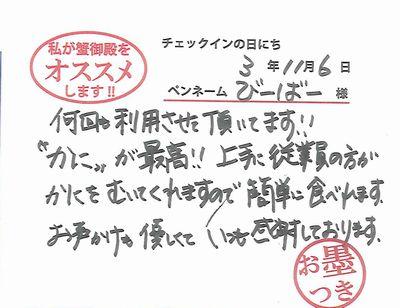 私が蟹御殿を
オススメ
します!!
チェックインの日にち
3年11月6日
ペンネーム びーばー 様
何回も利用させて頂いてます!!
"かに"が最高!! 上手に従業員の方が
かにをむいてくれますので簡単に食べれます。
お声かけも優しくていつも感謝しております。
お墨
つき